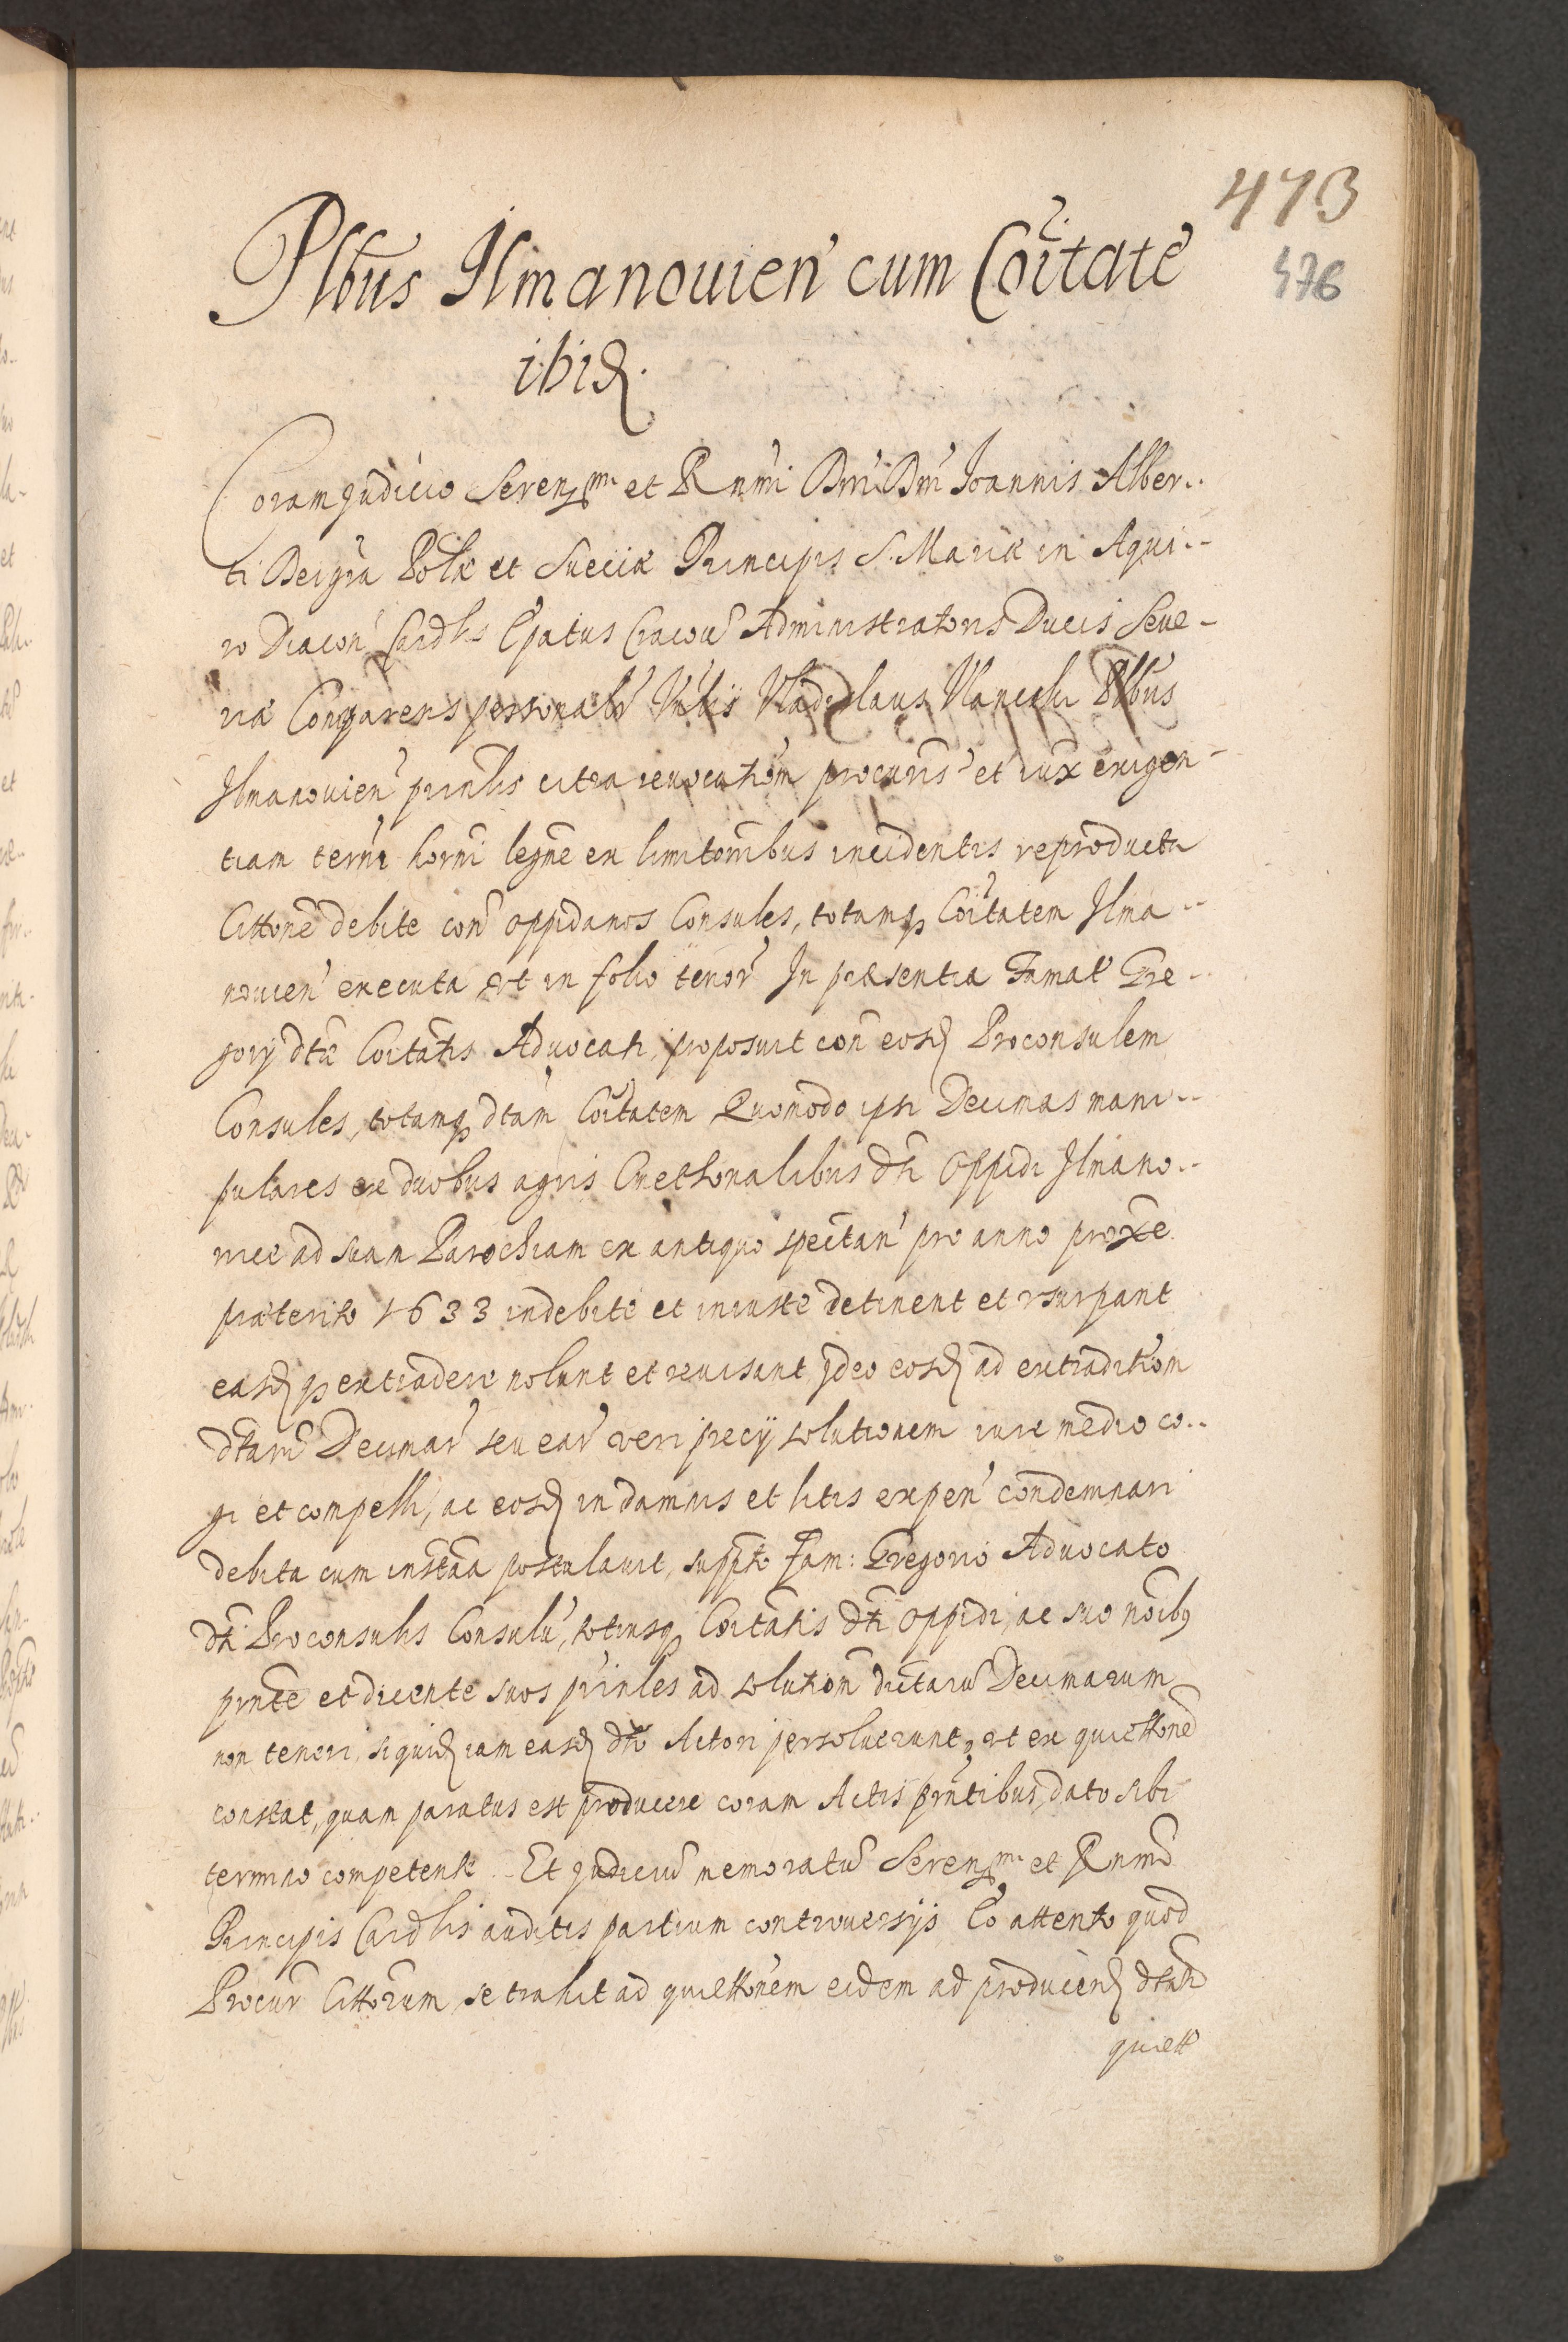 473
476
Plbus Ilmanouien cum Coitate
ibid.
Coram Judicio Serenssmi et Rnmi Dni Dni Joannis Alber..
ti Dei gra Polæ et Sueciæ Principis S. Mariæ in Aqui-
ro Diacon Cardlis Epatus Cracou Administratoris Ducis Seue-
riæ Comparens personalr Vnblis Vladislaus Plbus
Ilmanouien prinlis citra reuocatiom procuris et iux exigen-
tiam termi horni legme ex limitonibus incidentis reproducta
Cittone debite con oppidanos Consules, totamq Coitatem Ilma-
nouien executa, vt in folio tenor In præsentia Famat Gre-
gorij dtæ Coitatis Aduocati, proposuit con eosd Proconsulem
Consules, totamq dtam Coitatem Quomodo ipsi Decimas mani-
pulares ex duobus agris Cmethonalibus dti Oppidi Ilmano-
viec ad suam Parochiam ex antiquo spectan pro anno proxe
præterito 1633 indebite et iniuste detinent et vsurpant
easd q extradere nolunt et recusant, Ideo eosd ad extraditiom
dtaru Decimar seu ear veri precij solutionem iure medio co..
gi et compelli, ac eosd in damnis et litis expen condemnari
debita cum instaa postulauit, suppto Fam: Gregorio Aduocato
dti Proconsulis Consulu, totiusq Coitatis dti Oppidi, ac suo noibq
pnte et dicente suos prinles ad solutiom dictaru Decimarum
non teneri, siquid iam easd dto Actori persoluerunt, vt ex quiettone
constat, quam paratus est producere coram Actis pntibus, dato sibi
termino competente. Et Judiciu memoratu Serenssmi et Rnmi
Principis Cardlis auditis partium controuersijs Eo attento quod
Procur Cittorum se trahit ad quiettonem eidem ad producend dtam
quiett